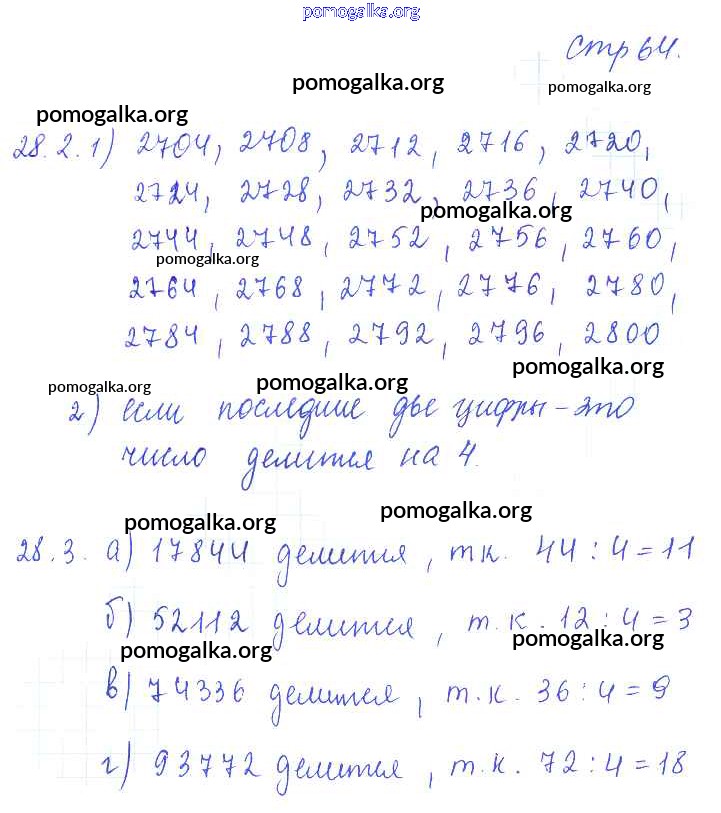 pomogalka.org
стр 64.
pomogalka.org
pomogalka.org
pomogalka.org
28.2.1) 2704, 2708, 2712, 2716, 2720,
2724, 2728, 2732, 2736, 2740,
pomogalka.org
2744, 2748, 2752, 2756, 2760,
pomogalka.org
2764, 2768, 2772, 2776, 2780,
2784, 2788, 2792, 2796, 2800
pomogalka.org
pomogalka.org
pomogalka.org
2) если последние две цифры - это
число делится на 4.
pomogalka.org
pomogalka.org
28.3. а) 17844 делится, т.к. 44 : 4 = 11
б) 52112 делится, т.к. 12 : 4 = 3
pomogalka.org
pomogalka.org
в) 74336 делится, т.к. 36 : 4 = 9
г) 93772 делится, т.к. 72 : 4 = 18